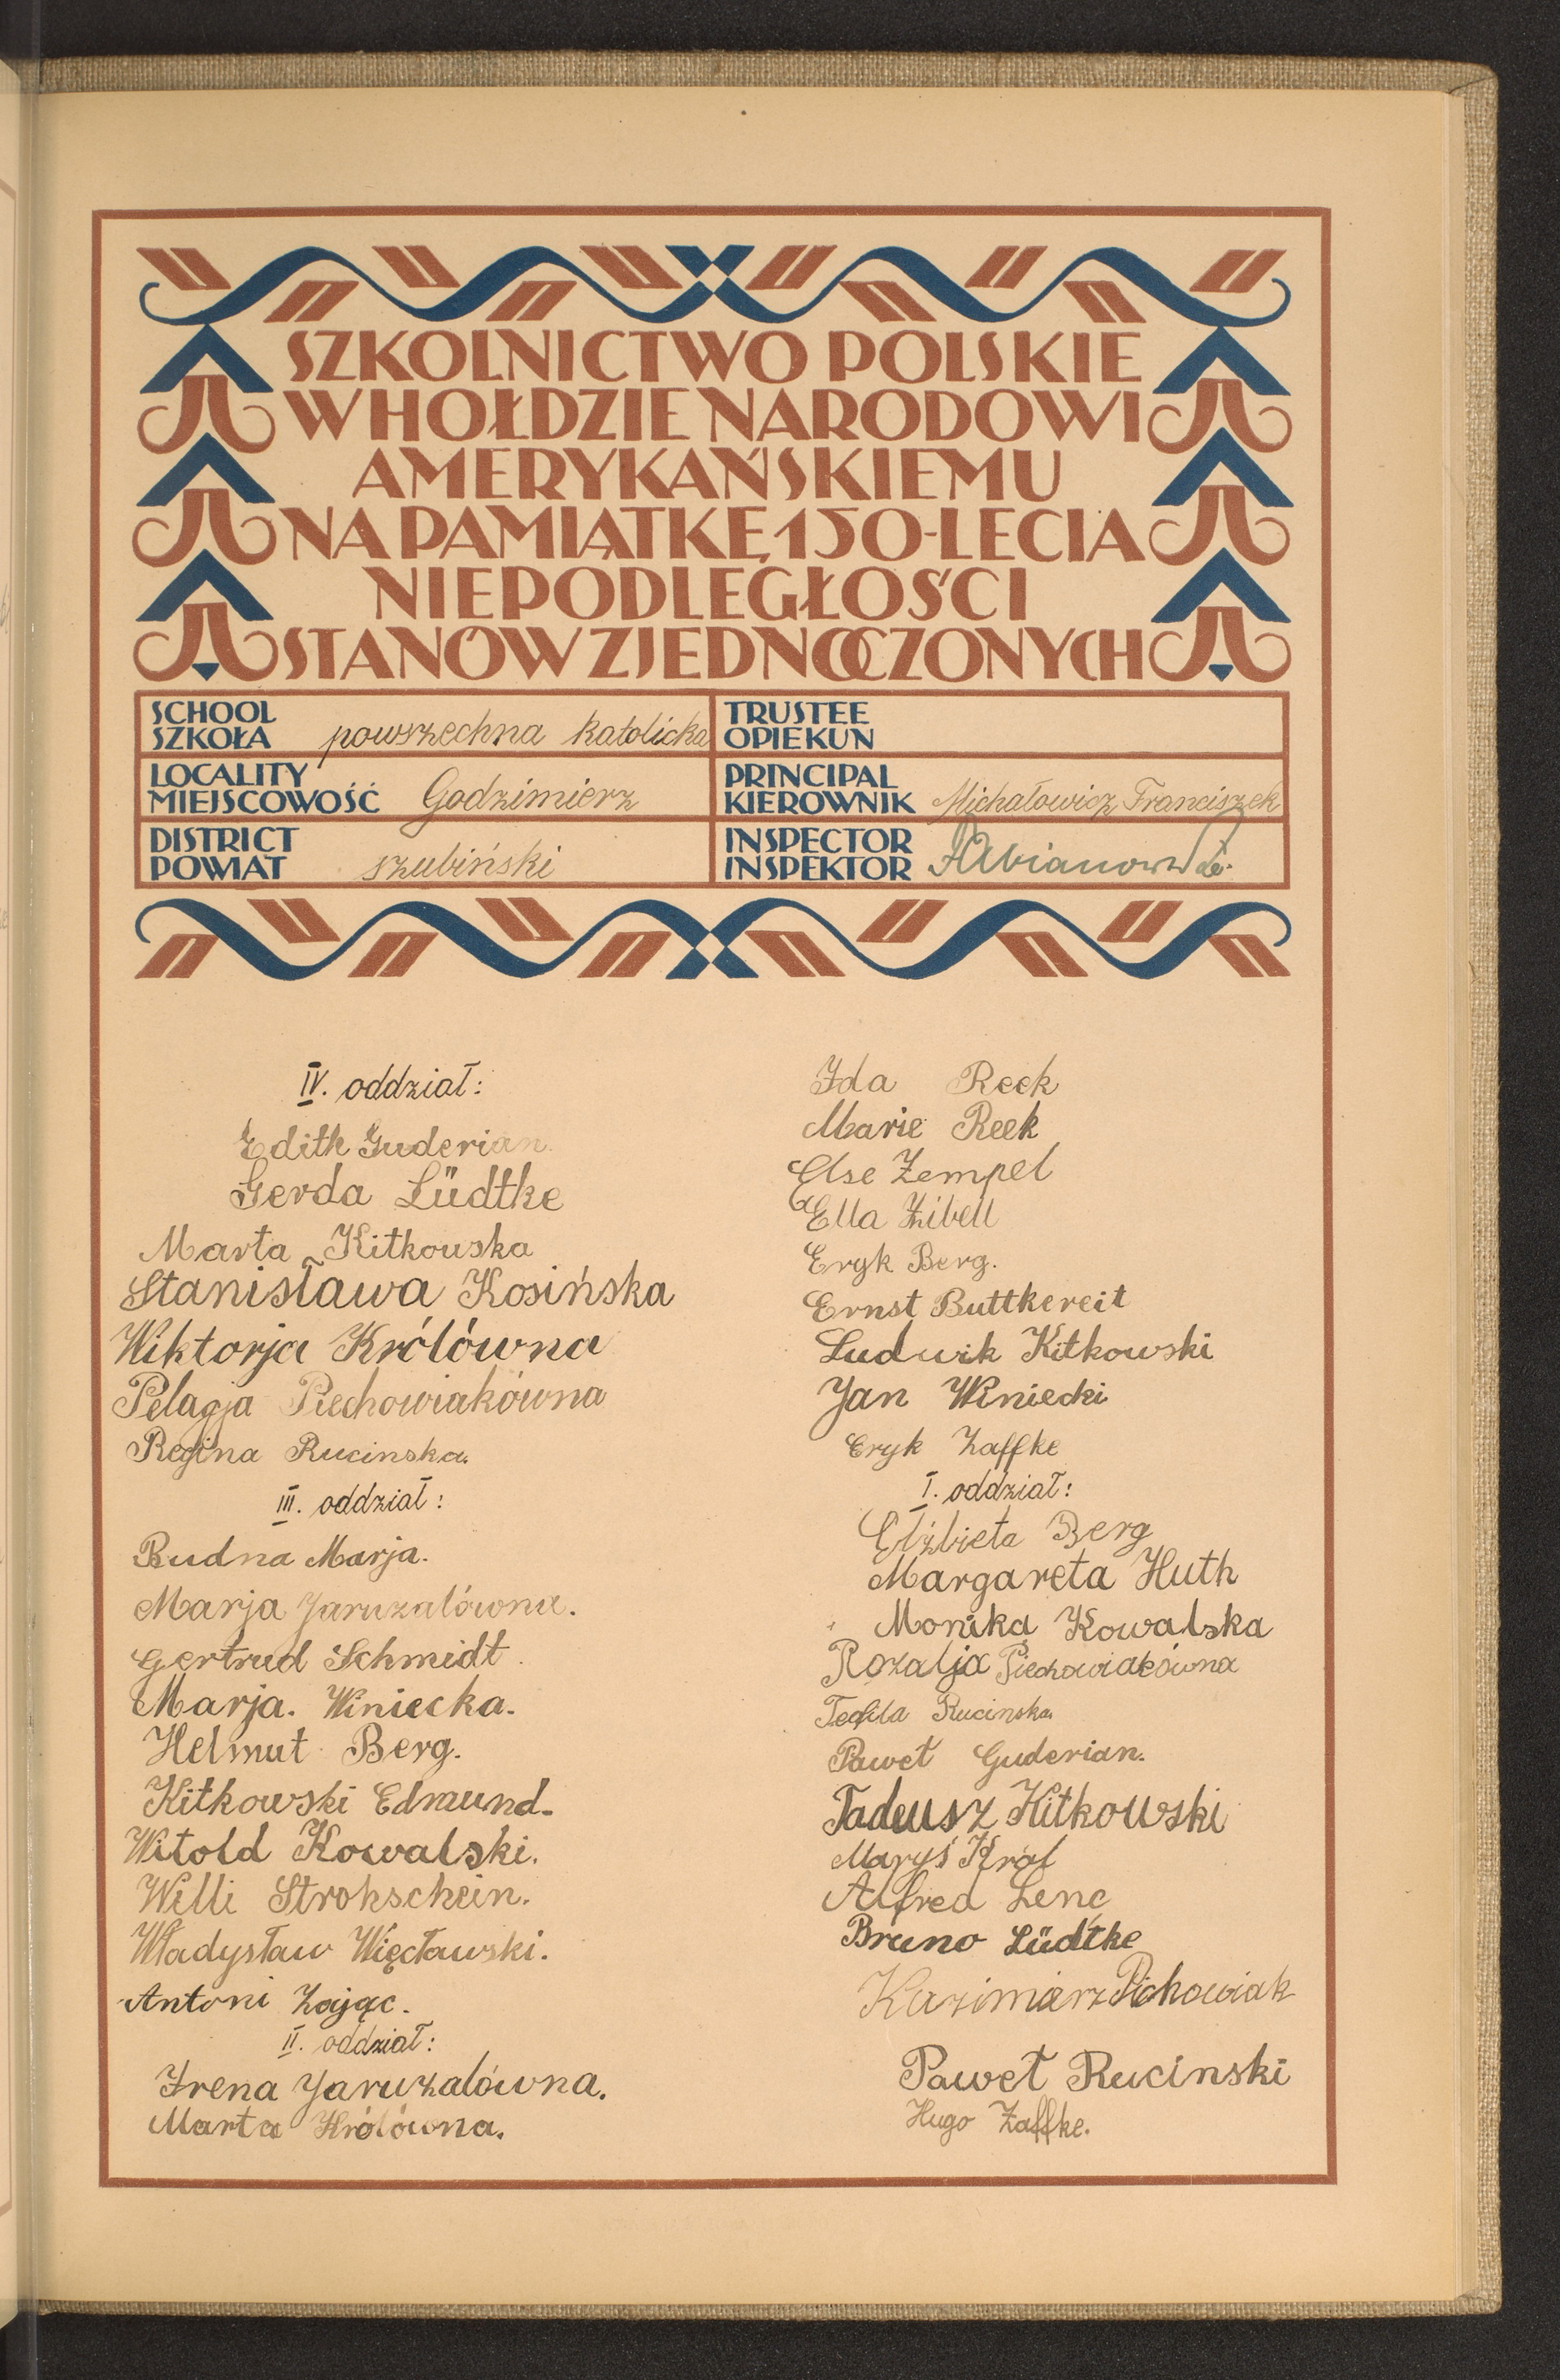 SZKOLNICTWO POLSKIE
W HOŁDZIE NARODOWI
AMERYKAŃSKIEMU
NA PAMIĄTKĘ 150-LECIA
NIEPODLEGŁOŚCI
STANÓW ZJEDNOCZONYCH
SCHOOL
SZKOŁA powszechna katolicka
TRUSTEE
OPIEKUN
LOCALITY
MIEJSCOWOŚĆ Godzimierz
PRINCIPAL
KIEROWNIK Michałowicz Franciszek
DISTRICT
POWIAT szubiński
INSPECTOR
INSPEKTOR
IV. oddział:
Edith Guderian
Gerda Lüdtke
Marta Kitkouska
Stanisława Kosińska
Wiktorja Królówna
Pelagja Piechowiakówna
Regina Rucinska.
III. oddział:
Budna Marja.
Marja Jaruzalówna.
Gertrud Schmidt.
Marja. Winiecka.
Helmut Berg.
Kitkowski Edmund.
Witold Kowalski.
Willi Strohschein.
Władysław Więcławski.
Antoni Zając.
II. oddział:
Irena Jaruzalówna.
Marta Królówna.
Ida Reek
Marie Reek
Else Zempel
Ella Zibell
Eryk Berg.
Ernst Buttkereit
Ludwik Kitkowski
Jan Winiecki
Eryk Zaffke
I. oddział:
Elżbieta Berg
Margareta Huth
Monika Kowalska
Rozalja Piechowiakówna
Teofila Rucinska
Paweł Guderian.
Tadeusz Kitkowski
Maryś Król
Alfred Lenc
Bruno Lüdtke
Kazimierz Pichowiak
Paweł Rucinski
Hugo Zaffke.